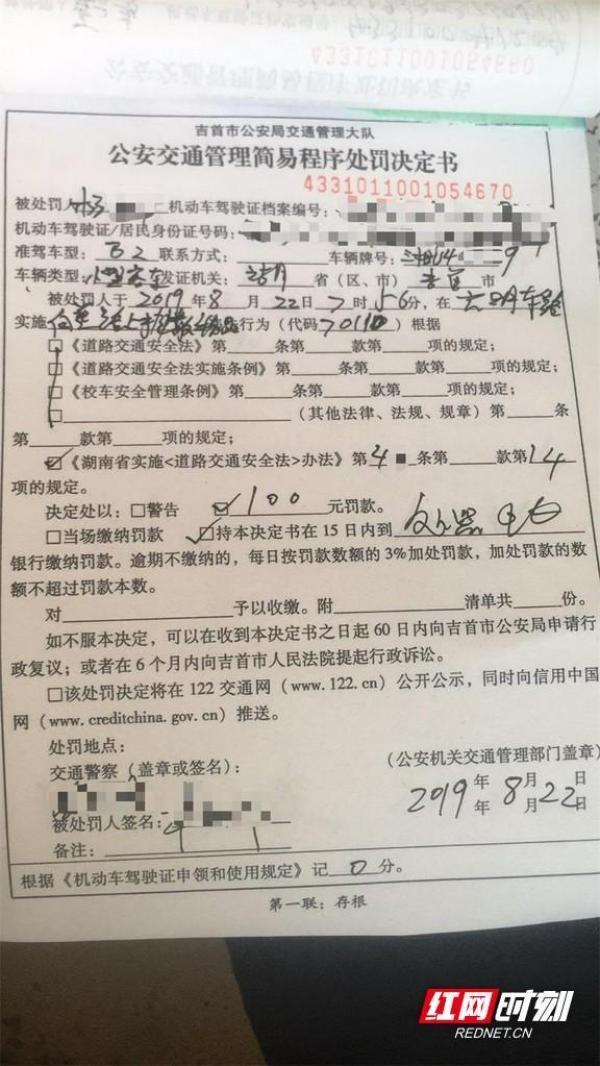 4331011001054660
吉首市公安局交通管理大队
公安交通管理简易程序处罚决定书
4331011001054670
被处罚人 杨 机动车驾驶证档案编号:
机动车驾驶证/居民身份证号码:
准驾车型: B2 联系方式: 车辆牌号: 湘U 9
车辆类型: 小型客车 发证机关: 湖南 省(区、市) 吉首 市
被处罚人于 2019 年 8 月 22 日 7 时 56 分,在
实施 行为(代码 70110 )根据
□《道路交通安全法》第 条第 款第 项的规定;
□《道路交通安全法实施条例》第 条第 款第 项的规定;
□《校车安全管理条例》第 条第 款第 项的规定;
□ (其他法律、法规、规章)第 条
第 款第 项的规定;
☑《湖南省实施<道路交通安全法>办法》第 4 条第 款第 14
项的规定。
决定处以:□警告 ☑ 100 元罚款。
□当场缴纳罚款 ☑持本决定书在 15 日内到
银行缴纳罚款。逾期不缴纳的,每日按罚款数额的 3%加处罚款,加处罚款的数
额不超过罚款本数。
对 予以收缴。附 清单共 份。
如不服本决定,可以在收到本决定书之日起 60 日内向吉首市公安局申请行
政复议;或者在 6 个月内向吉首市人民法院提起行政诉讼。
□该处罚决定将在 122 交通网(www.122.cn)公开公示,同时向信用中国
网(www.creditchina.gov.cn)推送。
处罚地点:
交通警察(盖章或签名): (公安机关交通管理部门盖章)
2019 年 8 月 22 日
年 月 日
被处罚人签名:
备注:
根据《机动车驾驶证申领和使用规定》记 0 分。
第一联:存根
红网时刻
REDNET.CN